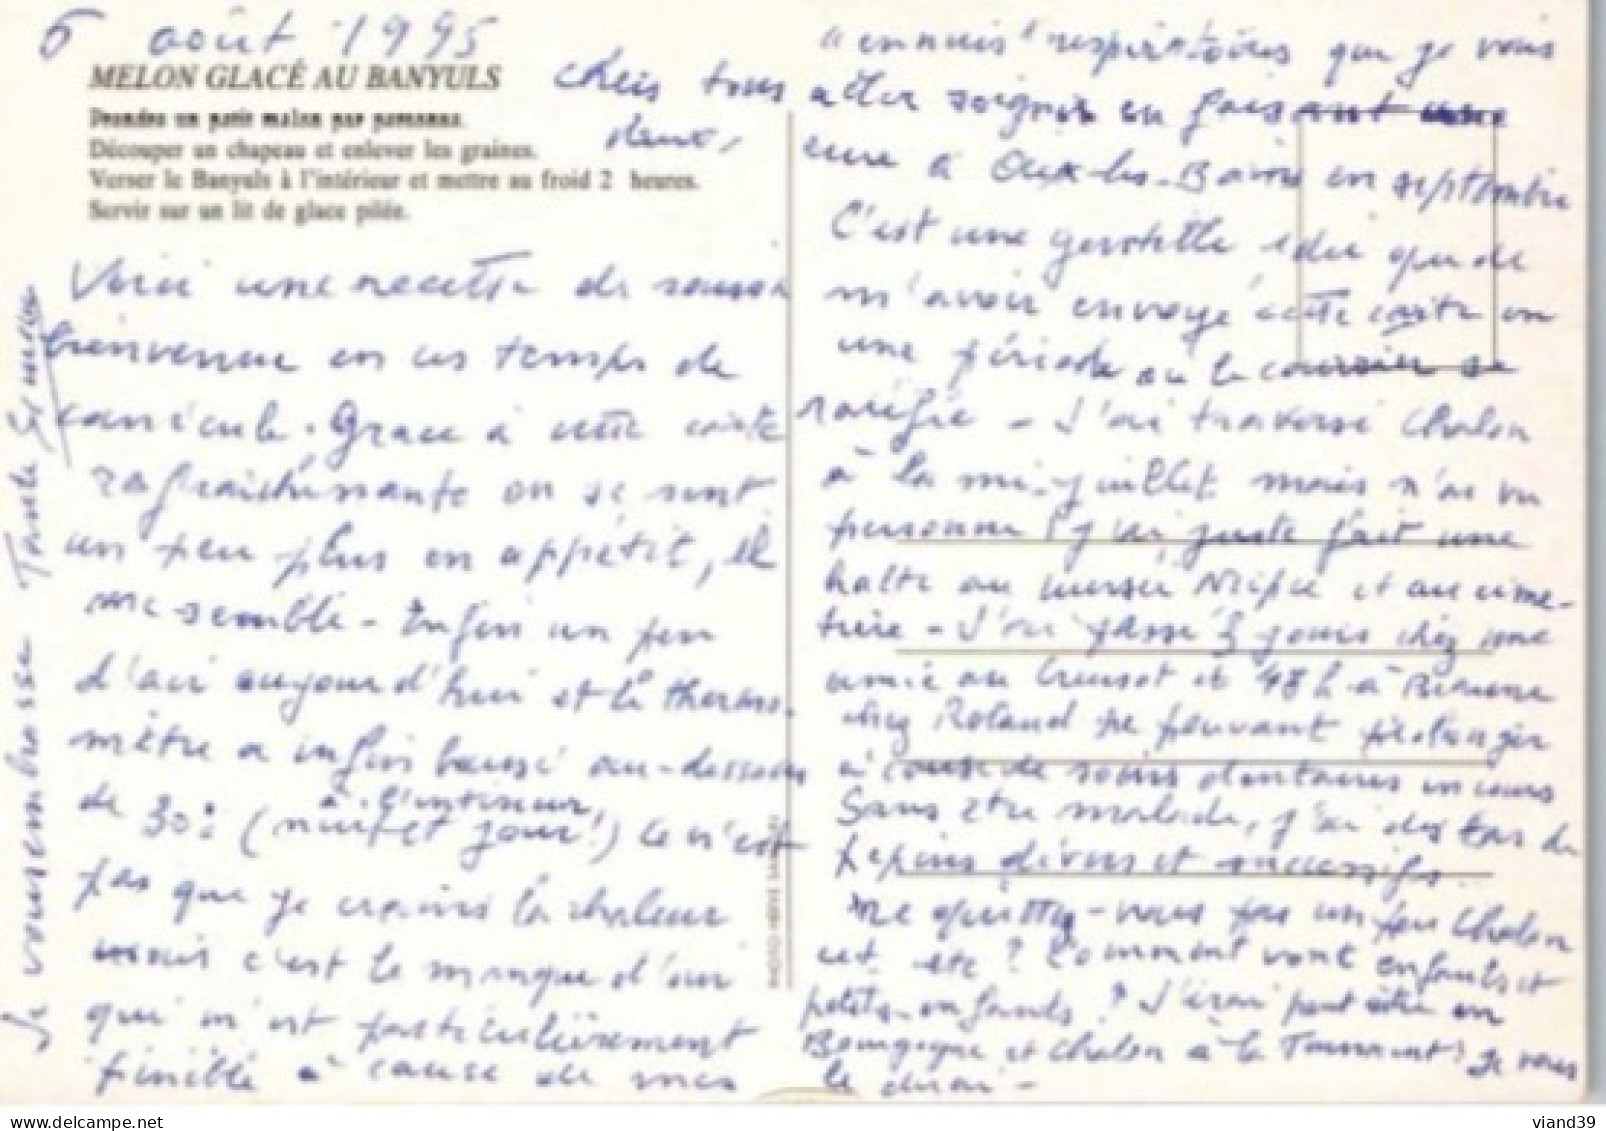 6 août 1995
MELON GLACÉ AU BANYULS
Prendre un petit melon par personne.
Découper un chapeau et enlever les graines.
Verser le Banyuls à l'intérieur et mettre au froid 2 heures.
Servir sur un lit de glace pilée.
Chers tous
deux,
Voici une recette de saison
bienvenue en ces temps de
canicule. Grace à cette carte
rafraichissante on se sent
un peu plus en appétit, il
me semble - Enfin un peu
d'air aujourd'hui et le thermo-
mètre a enfin baissé au-dessous
à l'intérieur,
de 30° (nuit et jour!) Ce n'est
pas que je crains la chaleur
mais c'est le manque d'air
qui m'est particulièrement
pénible à cause de mes
"ennuis" respiratoires que je vais
aller soigner en faisant une
cure à Aix-les-Bains en septembre
C'est une gentille idée que de
m'avoir envoyé cette carte en
une période où le courrier se
raréfie - J'ai traversé Chalon
à la mi-juillet mais n'ai vu
personne j'ai juste fait une
halte au musée Niepce et au cime-
tière - J'ai passé 3 jours chez une
amie au Creusot et 48 h à Beaune
chez Roland ne pouvant prolonger
à cause de soins dentaires en cours
Sans être malade, j'ai des tas de
pépins divers et successifs.
Ne quittez-vous pas un peu Chalon
cet été ? Comment vont enfants et
petits-enfants ? J'irai peut être en
Bourgogne et Chalon à la Toussaint? Je vous
le dirai -
Je vous embrasse Tante Simone
PHOTO HERVE
viand39